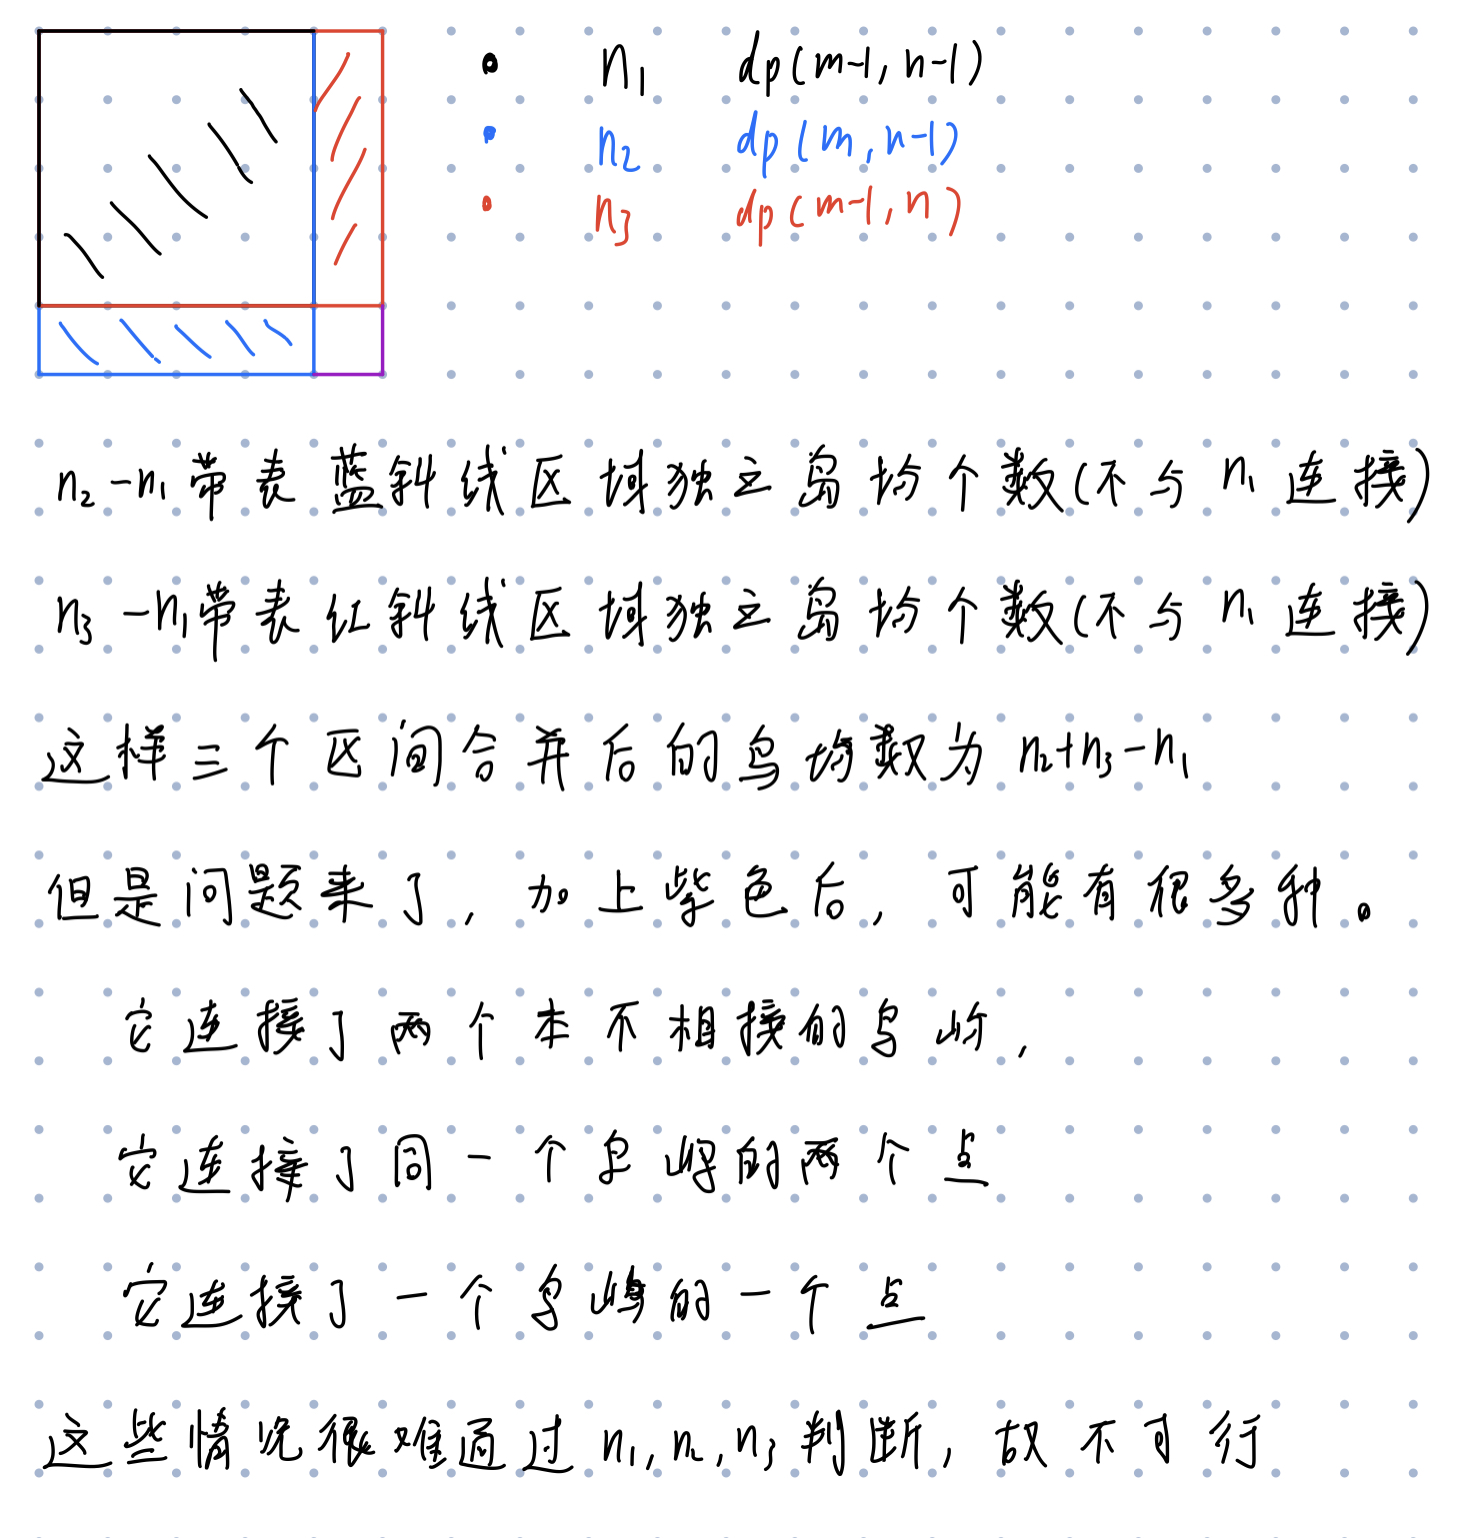 n₁ dp(m-1, n-1)
n₂ dp(m, n-1)
n₃ dp(m-1, n)
n₂-n₁带表蓝斜线区域独立岛屿个数(不与n₁连接)
n₃-n₁带表红斜线区域独立岛屿个数(不与n₁连接)
这样三个区间合并后的岛屿数为 n₂+n₃-n₁
但是问题来了, 加上紫色后, 可能有很多种。
它连接了两个本不相接的岛屿,
它连接了同一个岛屿的两个点
它连接了一个岛屿的一个点
这些情况很难通过 n₁, n₂, n₃判断, 故不可行